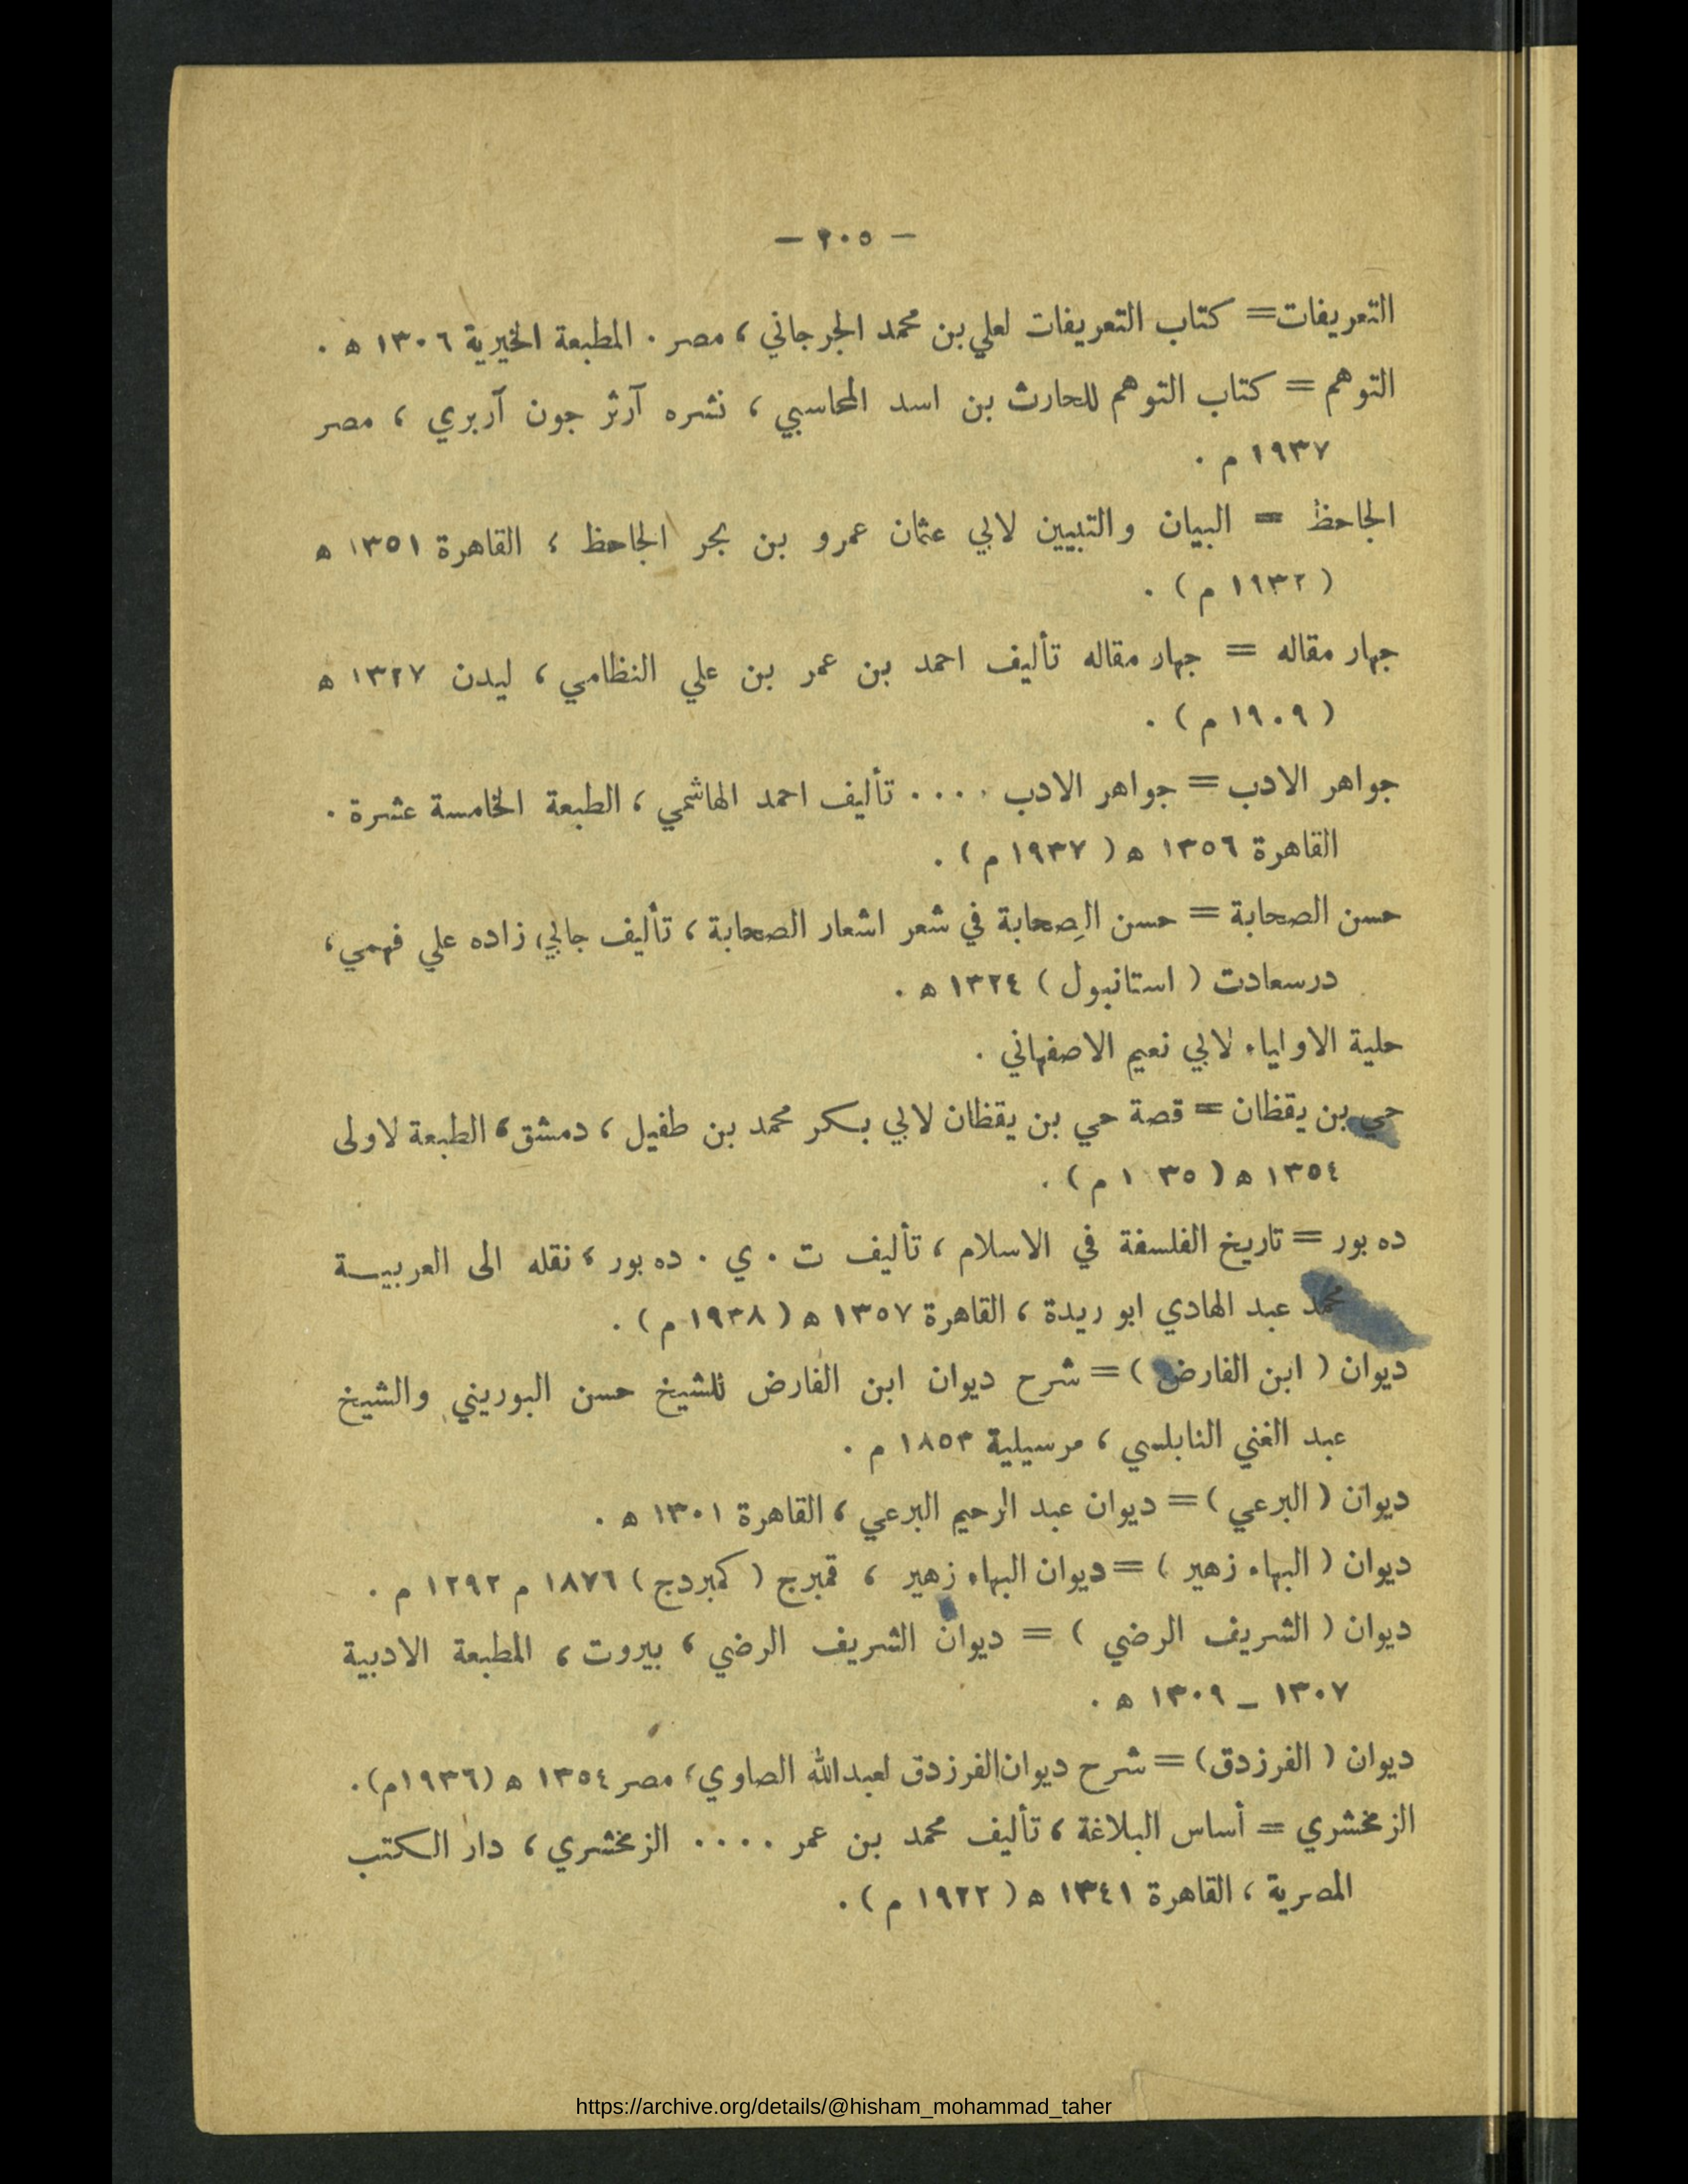 — ٢٠٥ —
التعريفات = كتاب التعريفات لعلي بن محمد الجرجاني ، مصر . المطبعة الخيرية ١٣٠٦ ه .
التوهم = كتاب التوهم للحارث بن اسد المحاسبي ، نشره آرثر جون آربري ، مصر
١٩٣٧ م .
الجاحظ = البيان والتبيين لابي عثمان عمرو بن بحر الجاحظ ، القاهرة ١٣٥١ ه
( ١٩٣٢ م ) .
جهار مقاله = جهار مقاله تأليف احمد بن عمر بن علي النظامي ، ليدن ١٣٢٧ ه
( ١٩٠٩ م ) .
جواهر الادب = جواهر الادب .... تأليف احمد الهاشمي ، الطبعة الخامسة عشرة .
القاهرة ١٣٥٦ ه ( ١٩٣٧ م ) .
حسن الصحابة = حسن الصِحابة في شعر اشعار الصحابة ، تأليف جابي زاده علي فهمي ،
درسعادت ( استانبول ) ١٣٢٤ ه .
حلية الاولياء لابي نعيم الاصفهاني .
حي بن يقظان = قصة حي بن يقظان لابي بكر محمد بن طفيل ، دمشق ، الطبعة لاولى
١٣٥٤ ه ( ١ ٣٥ م ) .
ده بور = تاريخ الفلسفة في الاسلام ، تأليف ت . ي . ده بور ، نقله الى العربية
محمد عبد الهادي ابو ريدة ، القاهرة ١٣٥٧ ه ( ١٩٣٨ م ) .
ديوان ( ابن الفارض ) = شرح ديوان ابن الفارض للشيخ حسن البوريني والشيخ
عبد الغني النابلسي ، مرسيلية ١٨٥٣ م .
ديوان ( البرعي ) = ديوان عبد الرحيم البرعي ، القاهرة ١٣٠١ ه .
ديوان ( البهاء زهير ) = ديوان البهاء زهير ، قمبرج ( كمبردج ) ١٨٧٦ م ١٢٩٢ م .
ديوان ( الشريف الرضي ) = ديوان الشريف الرضي ، بيروت ، المطبعة الادبية
١٣٠٧ – ١٣٠٩ ه .
ديوان ( الفرزدق ) = شرح ديوان الفرزدق لعبدالله الصاوي ، مصر ١٣٥٤ ه (١٩٣٦م) .
الزمخشري = أساس البلاغة ، تأليف محمد بن عمر .... الزمخشري ، دار الكتب
المصرية ، القاهرة ١٣٤١ ه ( ١٩٢٢ م ) .
https://archive.org/details/@hisham_mohammad_taher